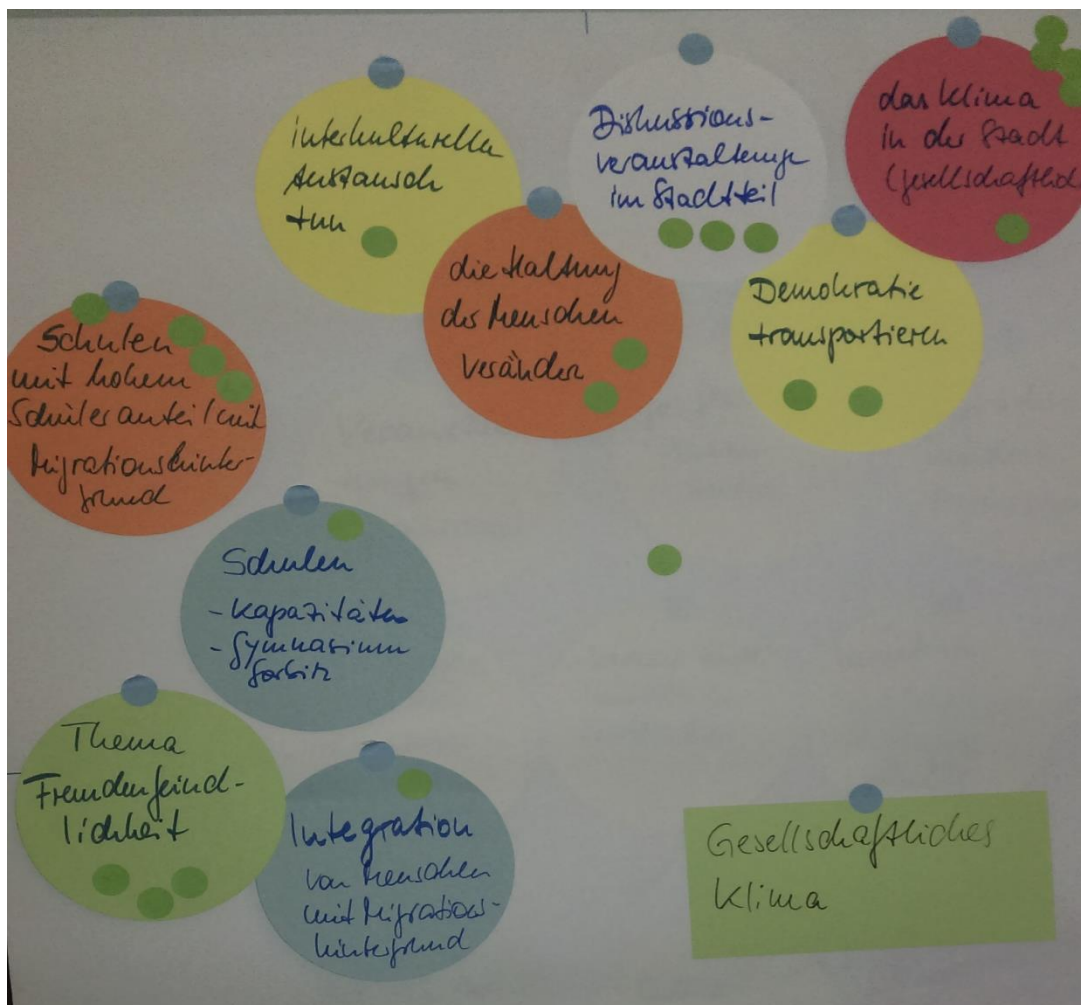 interkulturellen
Austausch
tun
Diskussions-
veranstaltunge
im Stadtteil
das Klima
in der Stadt
(gesellschaftlich
die Haltung
der Menschen
veränder
Demokratie
transportieren
Schulen
mit hohem
Schüleranteil mit
Migrationshinter-
grund
Schulen
- Kapazitäten
- Gymnasium
Gorbitz
Thema
Fremdenfeind-
lichkeit
Integration
von Menschen
mit Migrations-
hintergrund
Gesellschaftliches
Klima